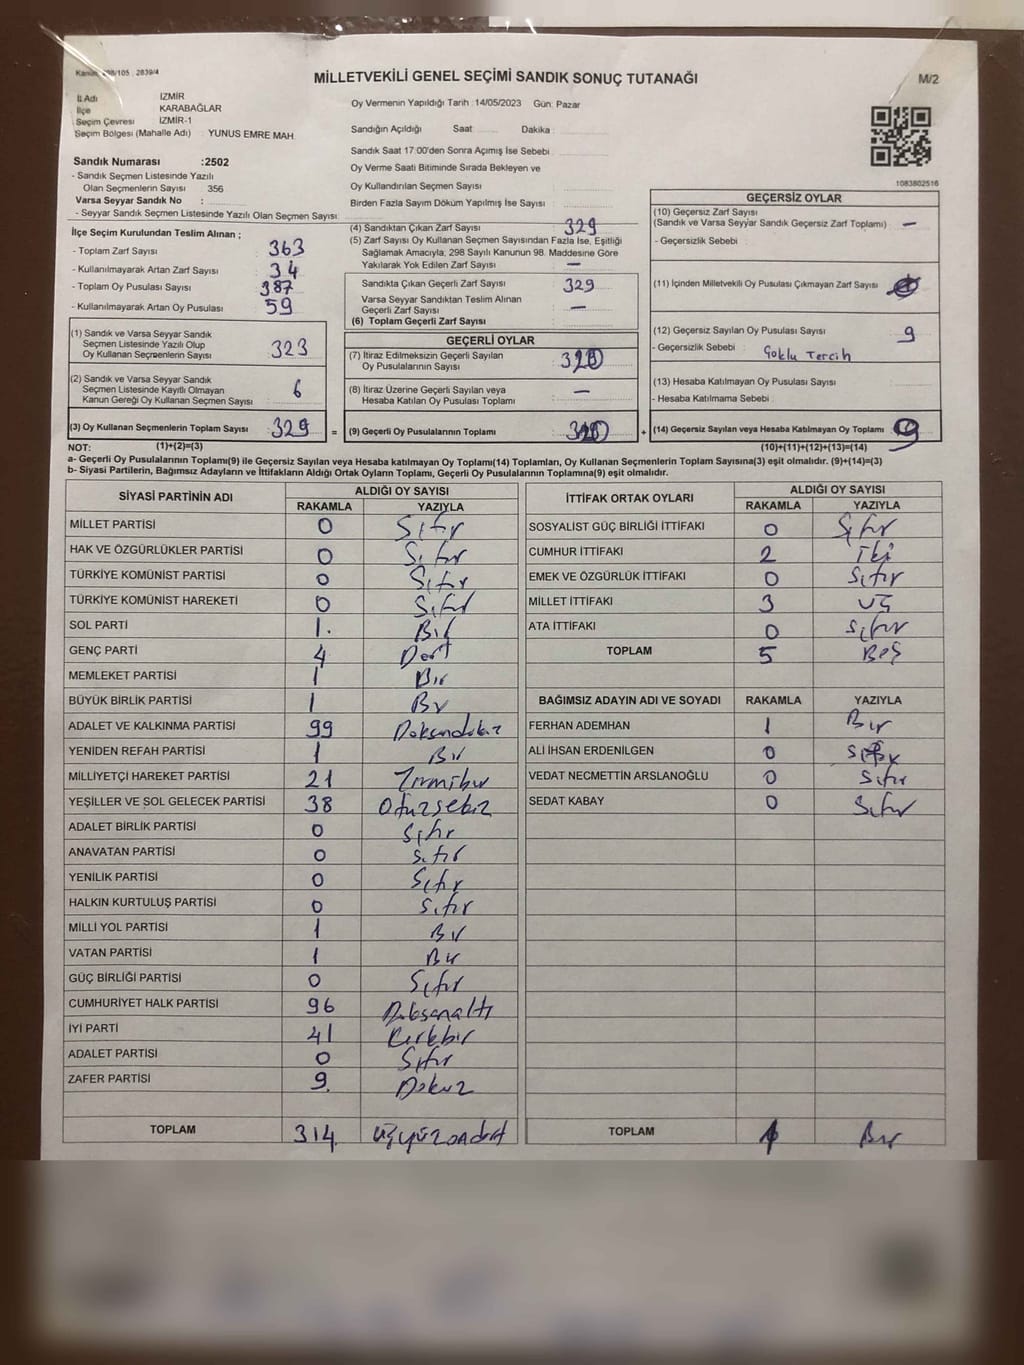 Kanun: 298/105 , 2839/4
MİLLETVEKİLİ GENEL SEÇİMİ SANDIK SONUÇ TUTANAĞI
M/2
İl Adı İZMİR
İlçe KARABAĞLAR
Seçim Çevresi İZMİR-1
Seçim Bölgesi (Mahalle Adı) : YUNUS EMRE MAH.
Sandık Numarası :2502
- Sandık Seçmen Listesinde Yazılı
Olan Seçmenlerin Sayısı 356
Varsa Seyyar Sandık No :
- Seyyar Sandık Seçmen Listesinde Yazılı Olan Seçmen Sayısı:
İlçe Seçim Kurulundan Teslim Alınan ;
- Toplam Zarf Sayısı 363
- Kullanılmayarak Artan Zarf Sayısı 34
- Toplam Oy Pusulası Sayısı 387
- Kullanılmayarak Artan Oy Pusulası 59
(1) Sandık ve Varsa Seyyar Sandık
Seçmen Listesinde Yazılı Olup
Oy Kullanan Seçmenlerin Sayısı 323
(2) Sandık ve Varsa Seyyar Sandık
Seçmen Listesinde Kayıtlı Olmayan
Kanun Gereği Oy Kullanan Seçmen Sayısı 6
(3) Oy Kullanan Seçmenlerin Toplam Sayısı 329 =
Oy Vermenin Yapıldığı Tarih :14/05/2023 Gün: Pazar
Sandığın Açıldığı Saat Dakika :
Sandık Saat 17:00'den Sonra Açımış İse Sebebi :
Oy Verme Saati Bitiminde Sırada Bekleyen ve
Oy Kullandırılan Seçmen Sayısı
Birden Fazla Sayım Döküm Yapılmış İse Sayısı :
(4) Sandıktan Çıkan Zarf Sayısı 329
(5) Zarf Sayısı Oy Kullanan Seçmen Sayısından Fazla İse, Eşitliği
Sağlamak Amacıyla, 298 Sayılı Kanunun 98. Maddesine Göre
Yakılarak Yok Edilen Zarf Sayısı –
Sandıkta Çıkan Geçerli Zarf Sayısı 329
Varsa Seyyar Sandıktan Teslim Alınan
Geçerli Zarf Sayısı –
(6) Toplam Geçerli Zarf Sayısı
GEÇERLİ OYLAR
(7) İtiraz Edilmeksizin Geçerli Sayılan
Oy Pusulalarının Sayısı
(8) İtiraz Üzerine Geçerli Sayılan veya
Hesaba Katılan Oy Pusulası Toplamı –
(9) Geçerli Oy Pusulalarının Toplamı +
1083802516
GEÇERSİZ OYLAR
(10) Geçersiz Zarf Sayısı
(Sandık ve Varsa Seyyar Sandık Geçersiz Zarf Toplamı) –
- Geçersizlik Sebebi :
(11) İçinden Milletvekili Oy Pusulası Çıkmayan Zarf Sayısı
(12) Geçersiz Sayılan Oy Pusulası Sayısı 9
- Geçersizlik Sebebi : Çoklu Tercih
(13) Hesaba Katılmayan Oy Pusulası Sayısı
- Hesaba Katılmama Sebebi :
(14) Geçersiz Sayılan veya Hesaba Katılmayan Oy Toplamı 9
NOT: (1)+(2)=(3) (10)+(11)+(12)+(13)=(14)
a- Geçerli Oy Pusulalarının Toplamı(9) ile Geçersiz Sayılan veya Hesaba katılmayan Oy Toplamı(14) Toplamları, Oy Kullanan Seçmenlerin Toplam Sayısına(3) eşit olmalıdır. (9)+(14)=(3)
b- Siyasi Partilerin, Bağımsız Adayların ve İttifakların Aldığı Ortak Oyların Toplamı, Geçerli Oy Pusulalarının Toplamına(9) eşit olmalıdır.
SİYASİ PARTİNİN ADI ALDIĞI OY SAYISI
RAKAMLA YAZIYLA
MİLLET PARTİSİ 0 Sıfır
HAK VE ÖZGÜRLÜKLER PARTİSİ 0 Sıfır
TÜRKİYE KOMÜNİST PARTİSİ 0 Sıfır
TÜRKİYE KOMÜNİST HAREKETİ 0 Sıfır
SOL PARTİ 1. Bir
GENÇ PARTİ 4 Dört
MEMLEKET PARTİSİ 1 Bir
BÜYÜK BİRLİK PARTİSİ 1 Bir
ADALET VE KALKINMA PARTİSİ 99 Doksandokuz
YENİDEN REFAH PARTİSİ 1 Bir
MİLLİYETÇİ HAREKET PARTİSİ 21 Yirmibir
YEŞİLLER VE SOL GELECEK PARTİSİ 38 Otuzsekiz
ADALET BİRLİK PARTİSİ 0 Sıfır
ANAVATAN PARTİSİ 0 Sıfır
YENİLİK PARTİSİ 0 Sıfır
HALKIN KURTULUŞ PARTİSİ 0 Sıfır
MİLLİ YOL PARTİSİ 1 Bir
VATAN PARTİSİ 1 Bir
GÜÇ BİRLİĞİ PARTİSİ 0 Sıfır
CUMHURİYET HALK PARTİSİ 96 Doksanaltı
İYİ PARTİ 41 Kırkbir
ADALET PARTİSİ 0 Sıfır
ZAFER PARTİSİ 9. Dokuz
TOPLAM 314 üçyüzondört
İTTİFAK ORTAK OYLARI ALDIĞI OY SAYISI
RAKAMLA YAZIYLA
SOSYALIST GÜÇ BİRLİĞİ İTTİFAKI 0 Sıfır
CUMHUR İTTİFAKI 2 İki
EMEK VE ÖZGÜRLÜK İTTİFAKI 0 Sıfır
MİLLET İTTİFAKI 3 üÇ
ATA İTTİFAKI 0 Sıfır
TOPLAM 5 Beş
BAĞIMSIZ ADAYIN ADI VE SOYADI RAKAMLA YAZIYLA
FERHAN ADEMHAN 1 Bir
ALİ İHSAN ERDENİLGEN 0 Sıfır
VEDAT NECMETTİN ARSLANOĞLU 0 Sıfır
SEDAT KABAY 0 Sıfır
TOPLAM 1 Bir